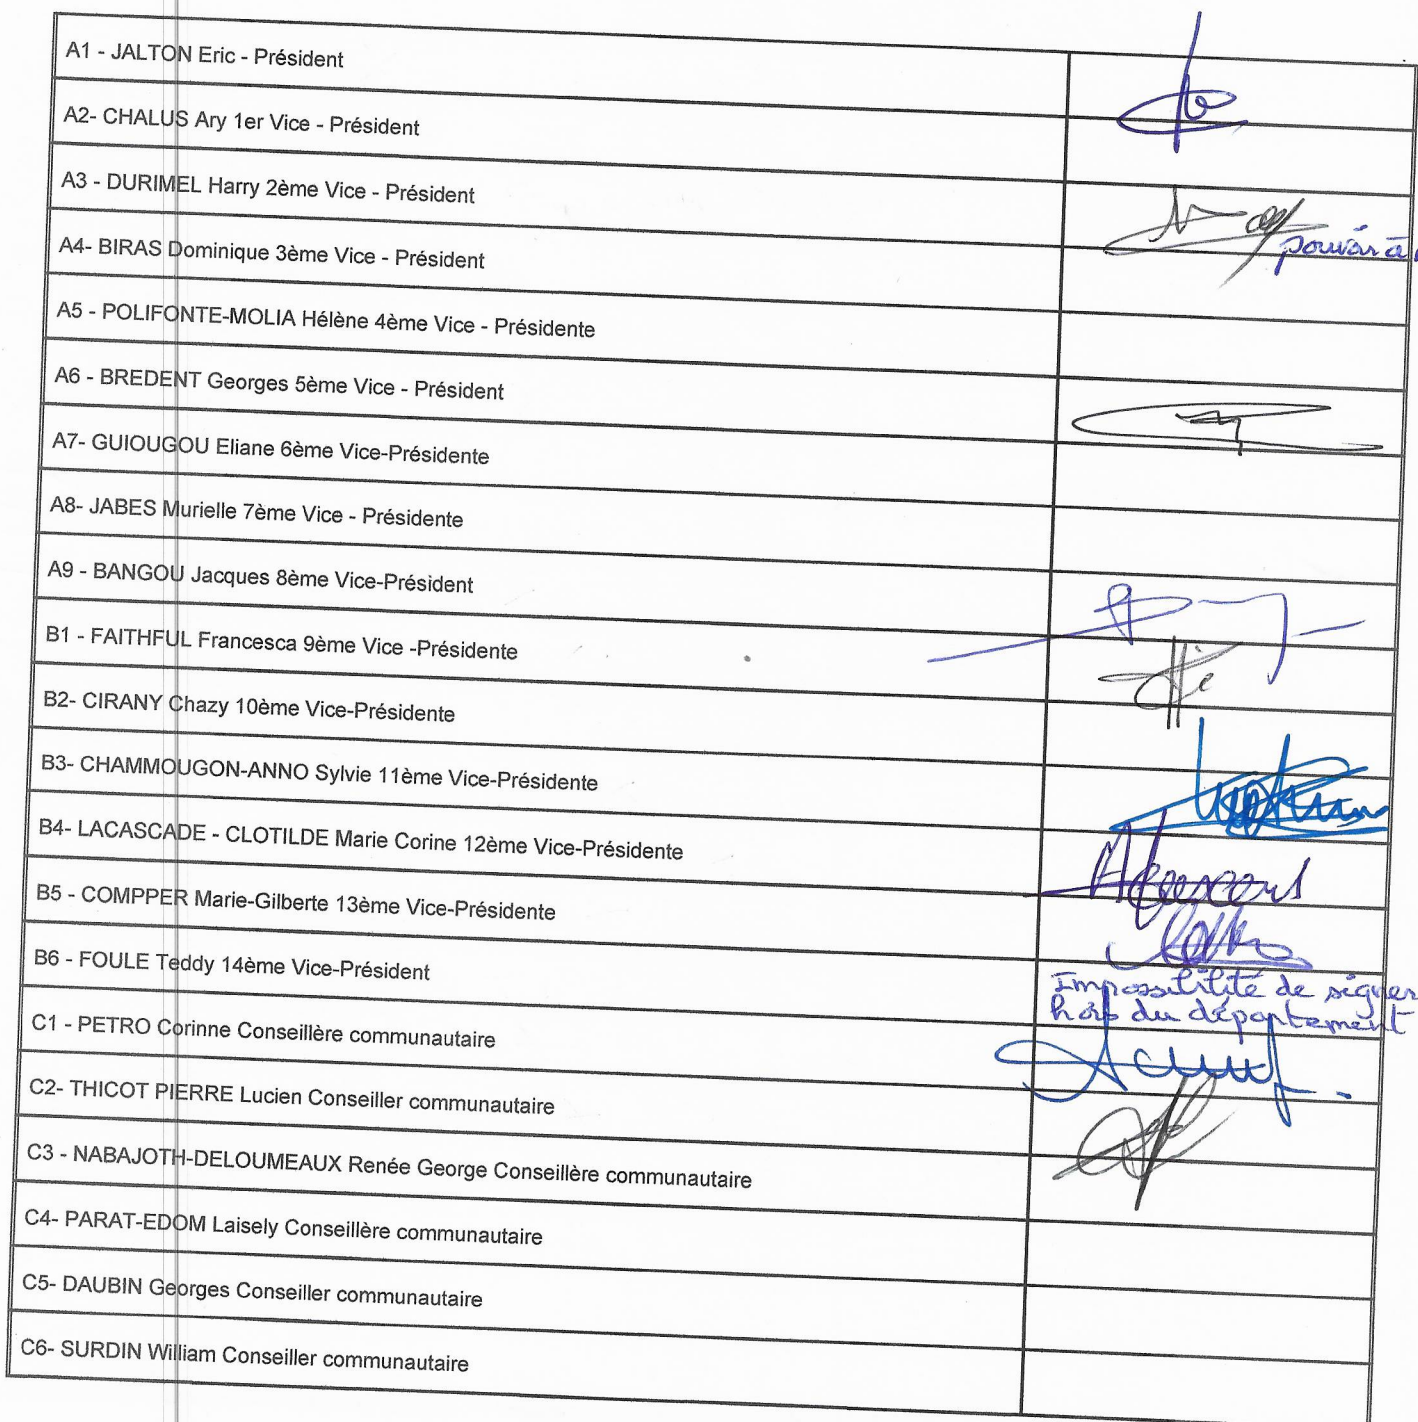 A1 - JALTON Eric - Président
A2- CHALUS Ary 1er Vice - Président
A3 - DURIMEL Harry 2ème Vice - Président
pouvoir à
A4- BIRAS Dominique 3ème Vice - Président
A5 - POLIFONTE-MOLIA Hélène 4ème Vice - Présidente
A6 - BREDENT Georges 5ème Vice - Président
A7- GUIOUGOU Eliane 6ème Vice-Présidente
A8- JABES Murielle 7ème Vice - Présidente
A9 - BANGOU Jacques 8ème Vice-Président
B1 - FAITHFUL Francesca 9ème Vice -Présidente
B2- CIRANY Chazy 10ème Vice-Présidente
B3- CHAMMOUGON-ANNO Sylvie 11ème Vice-Présidente
B4- LACASCADE - CLOTILDE Marie Corine 12ème Vice-Présidente
B5 - COMPPER Marie-Gilberte 13ème Vice-Présidente
B6 - FOULE Teddy 14ème Vice-Président
Impossibilité de signer
hors du département
C1 - PETRO Corinne Conseillère communautaire
C2- THICOT PIERRE Lucien Conseiller communautaire
C3 - NABAJOTH-DELOUMEAUX Renée George Conseillère communautaire
C4- PARAT-EDOM Laisely Conseillère communautaire
C5- DAUBIN Georges Conseiller communautaire
C6- SURDIN William Conseiller communautaire